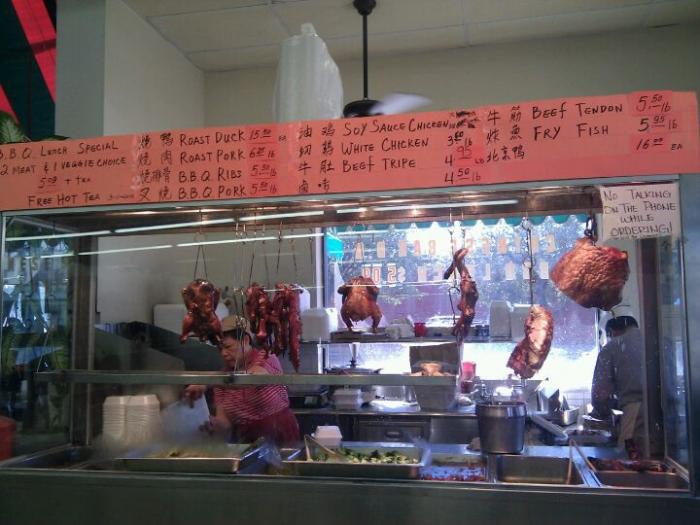 B.B.Q. LUNCH SPECIAL
2 MEAT & 1 VEGGIE CHOICE
+ TEA
FREE HOT TEA
燒 鴨 ROAST DUCK 15.50 EA
燒 肉 ROAST PORK
燒排骨 B.B.Q RIBS 5.50 lb
叉 燒 B.B.Q PORK 5.50 lb
油 鸡 SOY SAUCE CHICKEN
WHITE CHICKEN
牛 肚 BEEF TRIPE
4.50 lb
牛 筋 BEEF TENDON 5.50 lb
炸 魚 FRY FISH 5.95 lb
北京鸭 16.00 EA
NO TALKING
ON THE PHONE
WHILE
ORDERING!